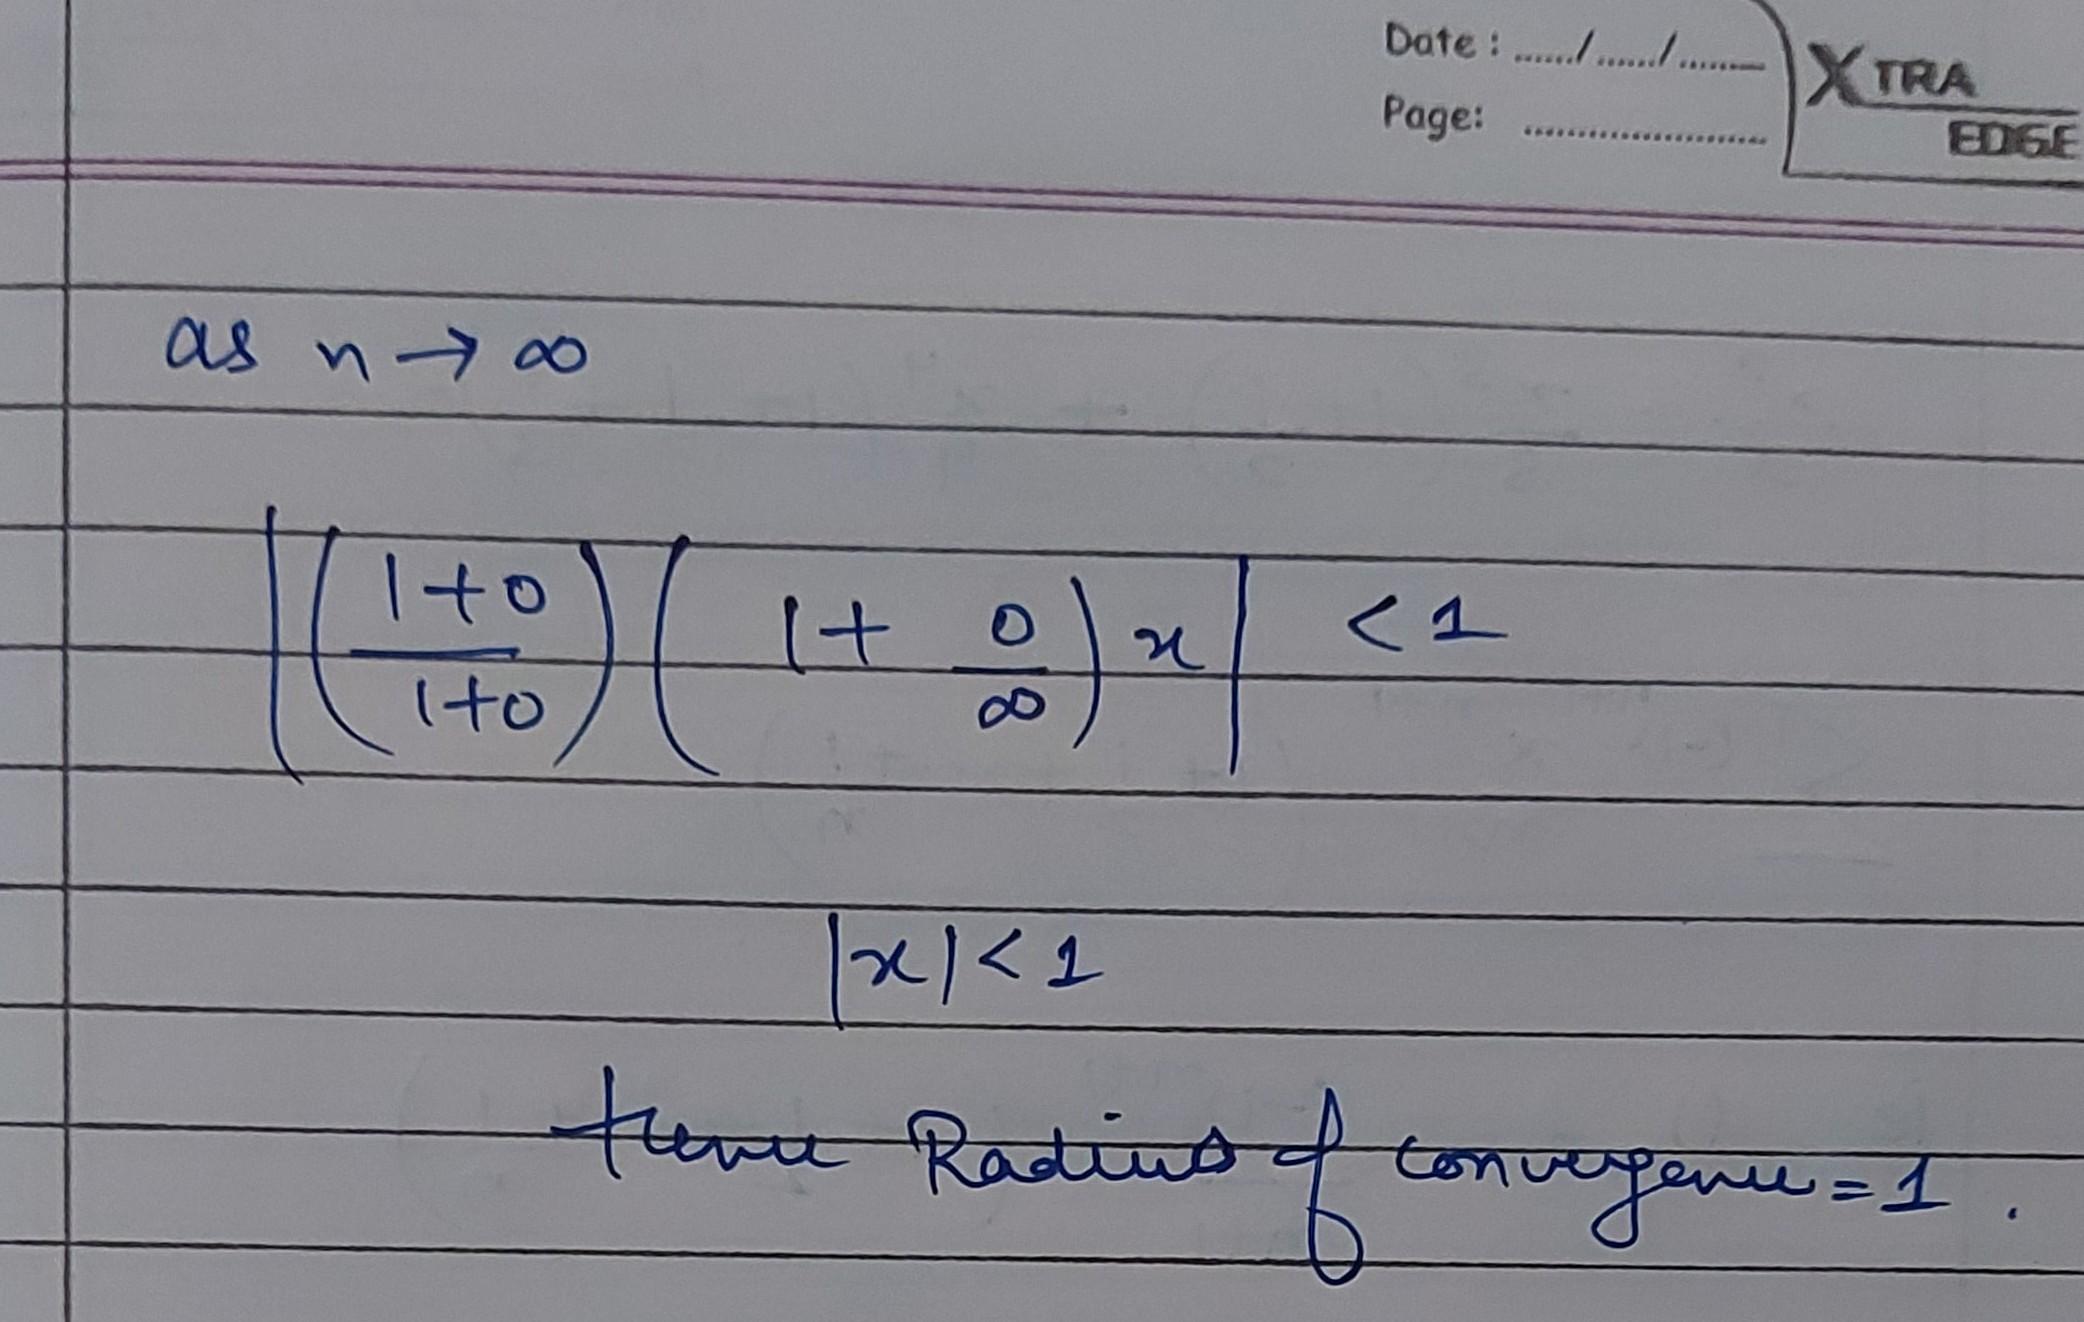 Date : ....../......./.........
Page: ........................
XTRA
EDGE
as n → ∞
|((1+0)/(1+0)) (1 + 0/∞) x| < 1
|x| < 1
Hence Radius of convergence = 1 .